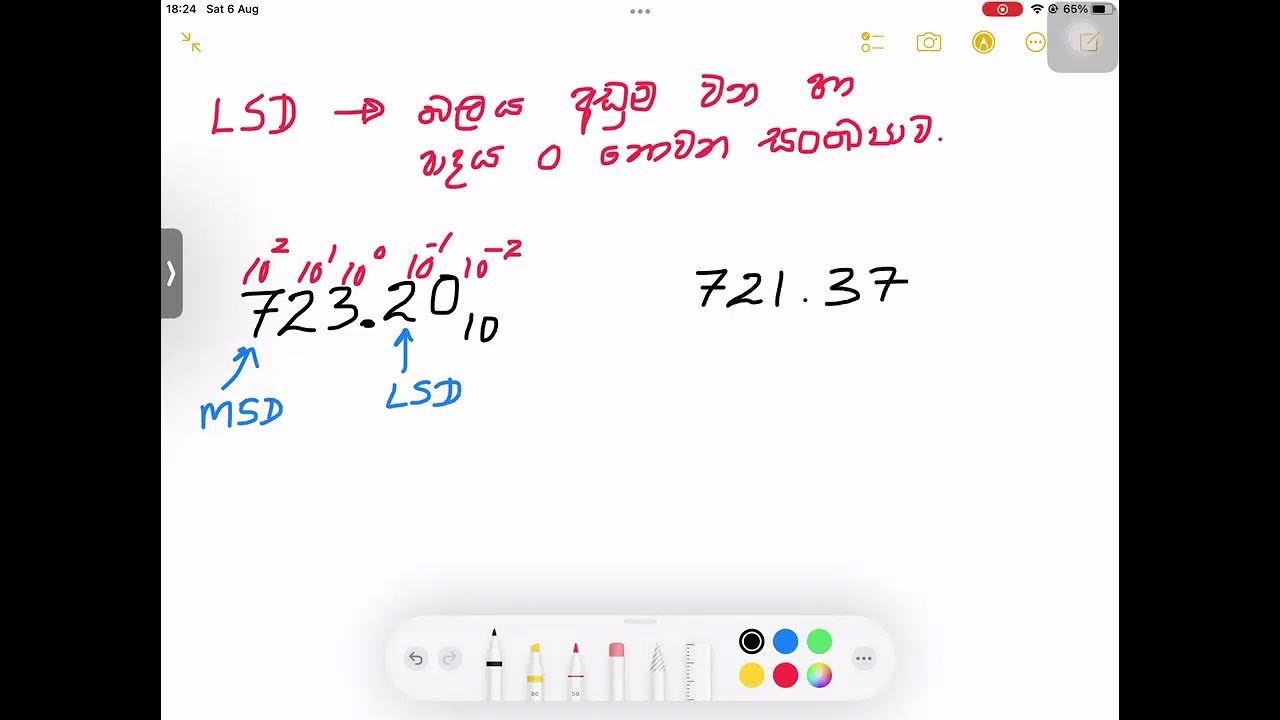 18:24 Sat 6 Aug 65%
LSD → බලය අඩුම වන හා
පාදය 0 නොවන සංඛ්‍යාව.
10² 10¹ 10⁰ 10⁻¹ 10⁻²
723.20₁₀
721.37
MSD LSD
80 50